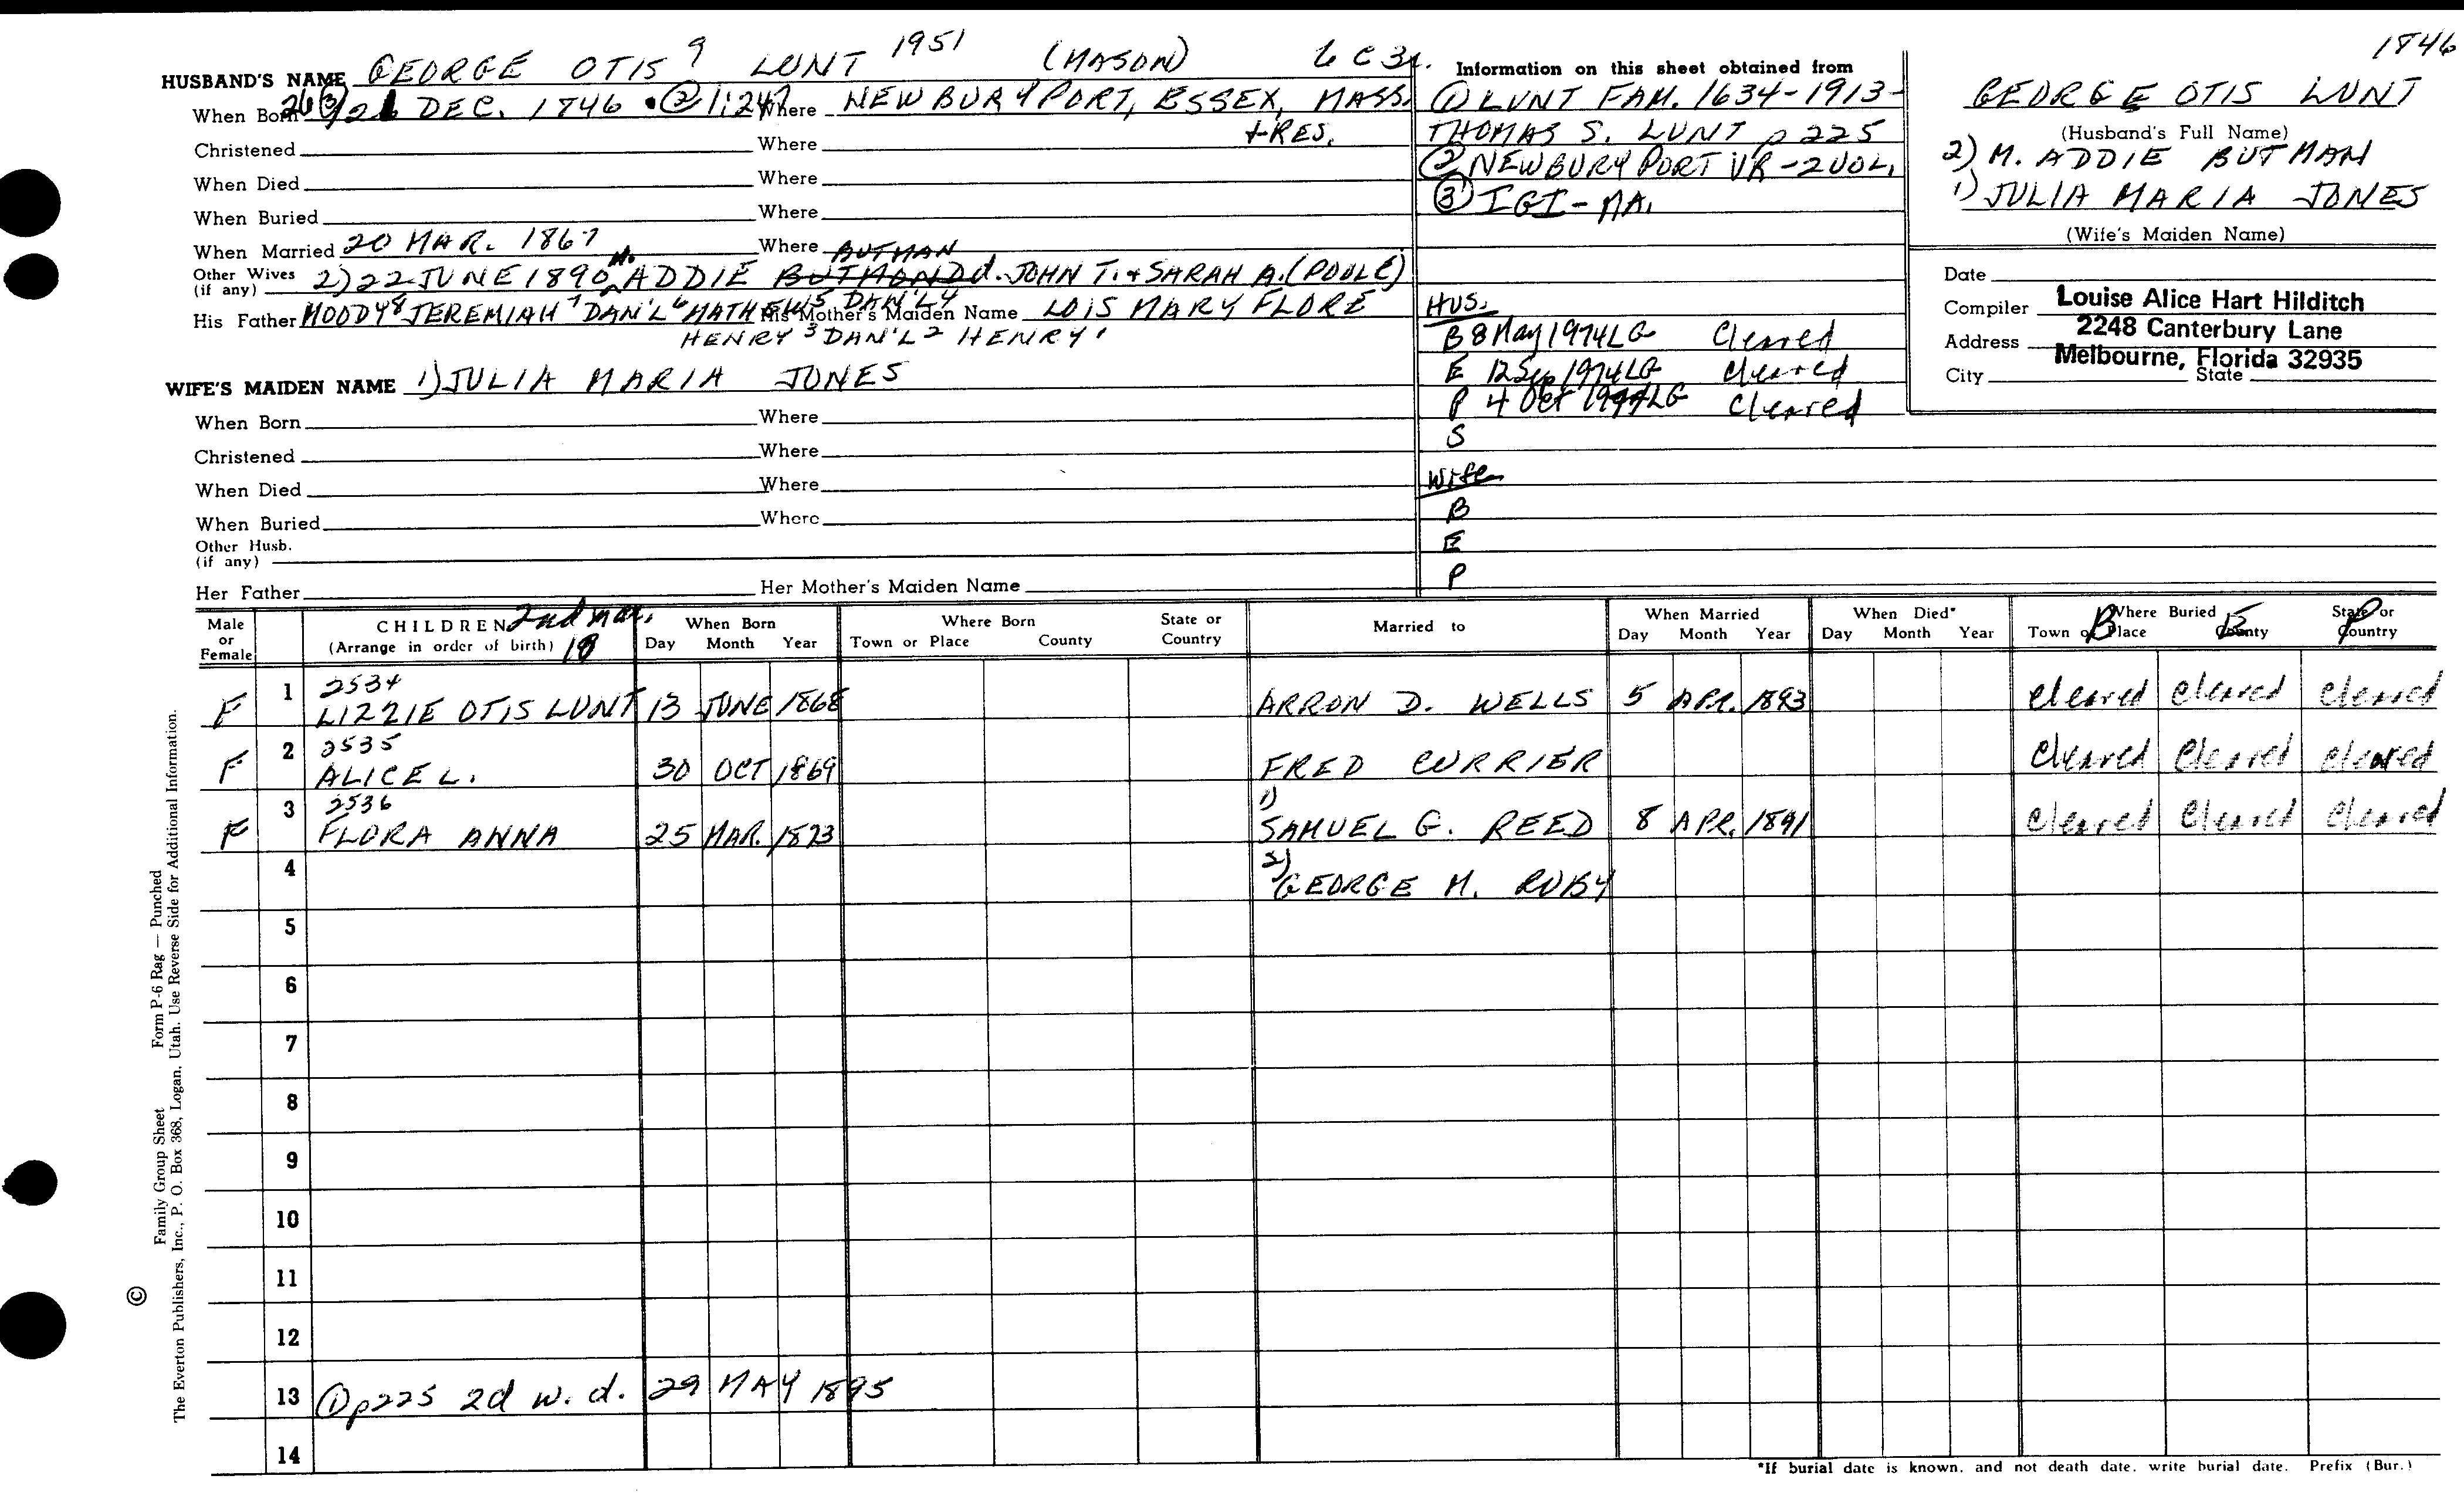 1846
HUSBAND'S NAME GEORGE OTIS 9 LUNT 1951 (MASON)
When Born 26 ③ / 26 DEC. 1846 • ② 1:247 Where NEWBURYPORT, ESSEX, MASS.
+ RES.
Christened Where
When Died Where
When Buried Where
When Married 20 MAR. 1867 Where
BUTMAN
Other Wives (if any) 2) 22 JUNE 1890 M. ADDIE BUTMOND d. JOHN T. + SARAH A. (POOLE)
His Father MOODY 8 JEREMIAH 7 DAN'L 6 MATHEW 5 DAN'L 4 His Mother's Maiden Name LOIS MARY FLORE
HENRY 3 DAN'L 2 HENRY 1
WIFE'S MAIDEN NAME 1) JULIA MARIA JONES
When Born Where
Christened Where
When Died Where
When Buried Where
Other Husb. (if any)
Her Father Her Mother's Maiden Name
Information on this sheet obtained from
① LUNT FAM. 1634-1913-
THOMAS S. LUNT p 225
② NEWBURYPORT VR - 2 VOL.
③ IGI - MA.
HUS.
B 8 May 1974 LG Cleared
E 12 Sep 1974 LG Cleared
P 4 Oct 1974 LG Cleared
S
Wife
B
E
P
GEORGE OTIS LUNT
(Husband's Full Name)
2) M. ADDIE BUTMAN
1) JULIA MARIA JONES
(Wife's Maiden Name)
Date
Compiler Louise Alice Hart Hilditch
Address 2248 Canterbury Lane
Melbourne, Florida 32935
City State
Male or Female CHILDREN (Arrange in order of birth) 2nd mar. When Born Day Month Year Where Born Town or Place County State or Country Married to When Married Day Month Year When Died* Day Month Year Where Buried Town or Place County State or Country B E P
2534
F 1 LIZZIE OTIS LUNT 13 JUNE 1868 ARRON D. WELLS 5 APR. 1893 Cleared Cleared Cleared
2535
F 2 ALICE L. 30 OCT 1869 FRED CURRIER Cleared Cleared Cleared
2536 1)
F 3 FLORA ANNA 25 MAR. 1873 SAMUEL G. REED 8 APR. 1891 Cleared Cleared Cleared
4 2) GEORGE M. RUBY
5
6
7
8
9
10
11
12
13 ① p225 2d w. d. 29 MAY 1895
14
*If burial date is known, and not death date, write burial date. Prefix (Bur.)
© Family Group Sheet Form P-6 Rag — Punched
The Everton Publishers, Inc., P. O. Box 368, Logan, Utah. Use Reverse Side for Additional Information.